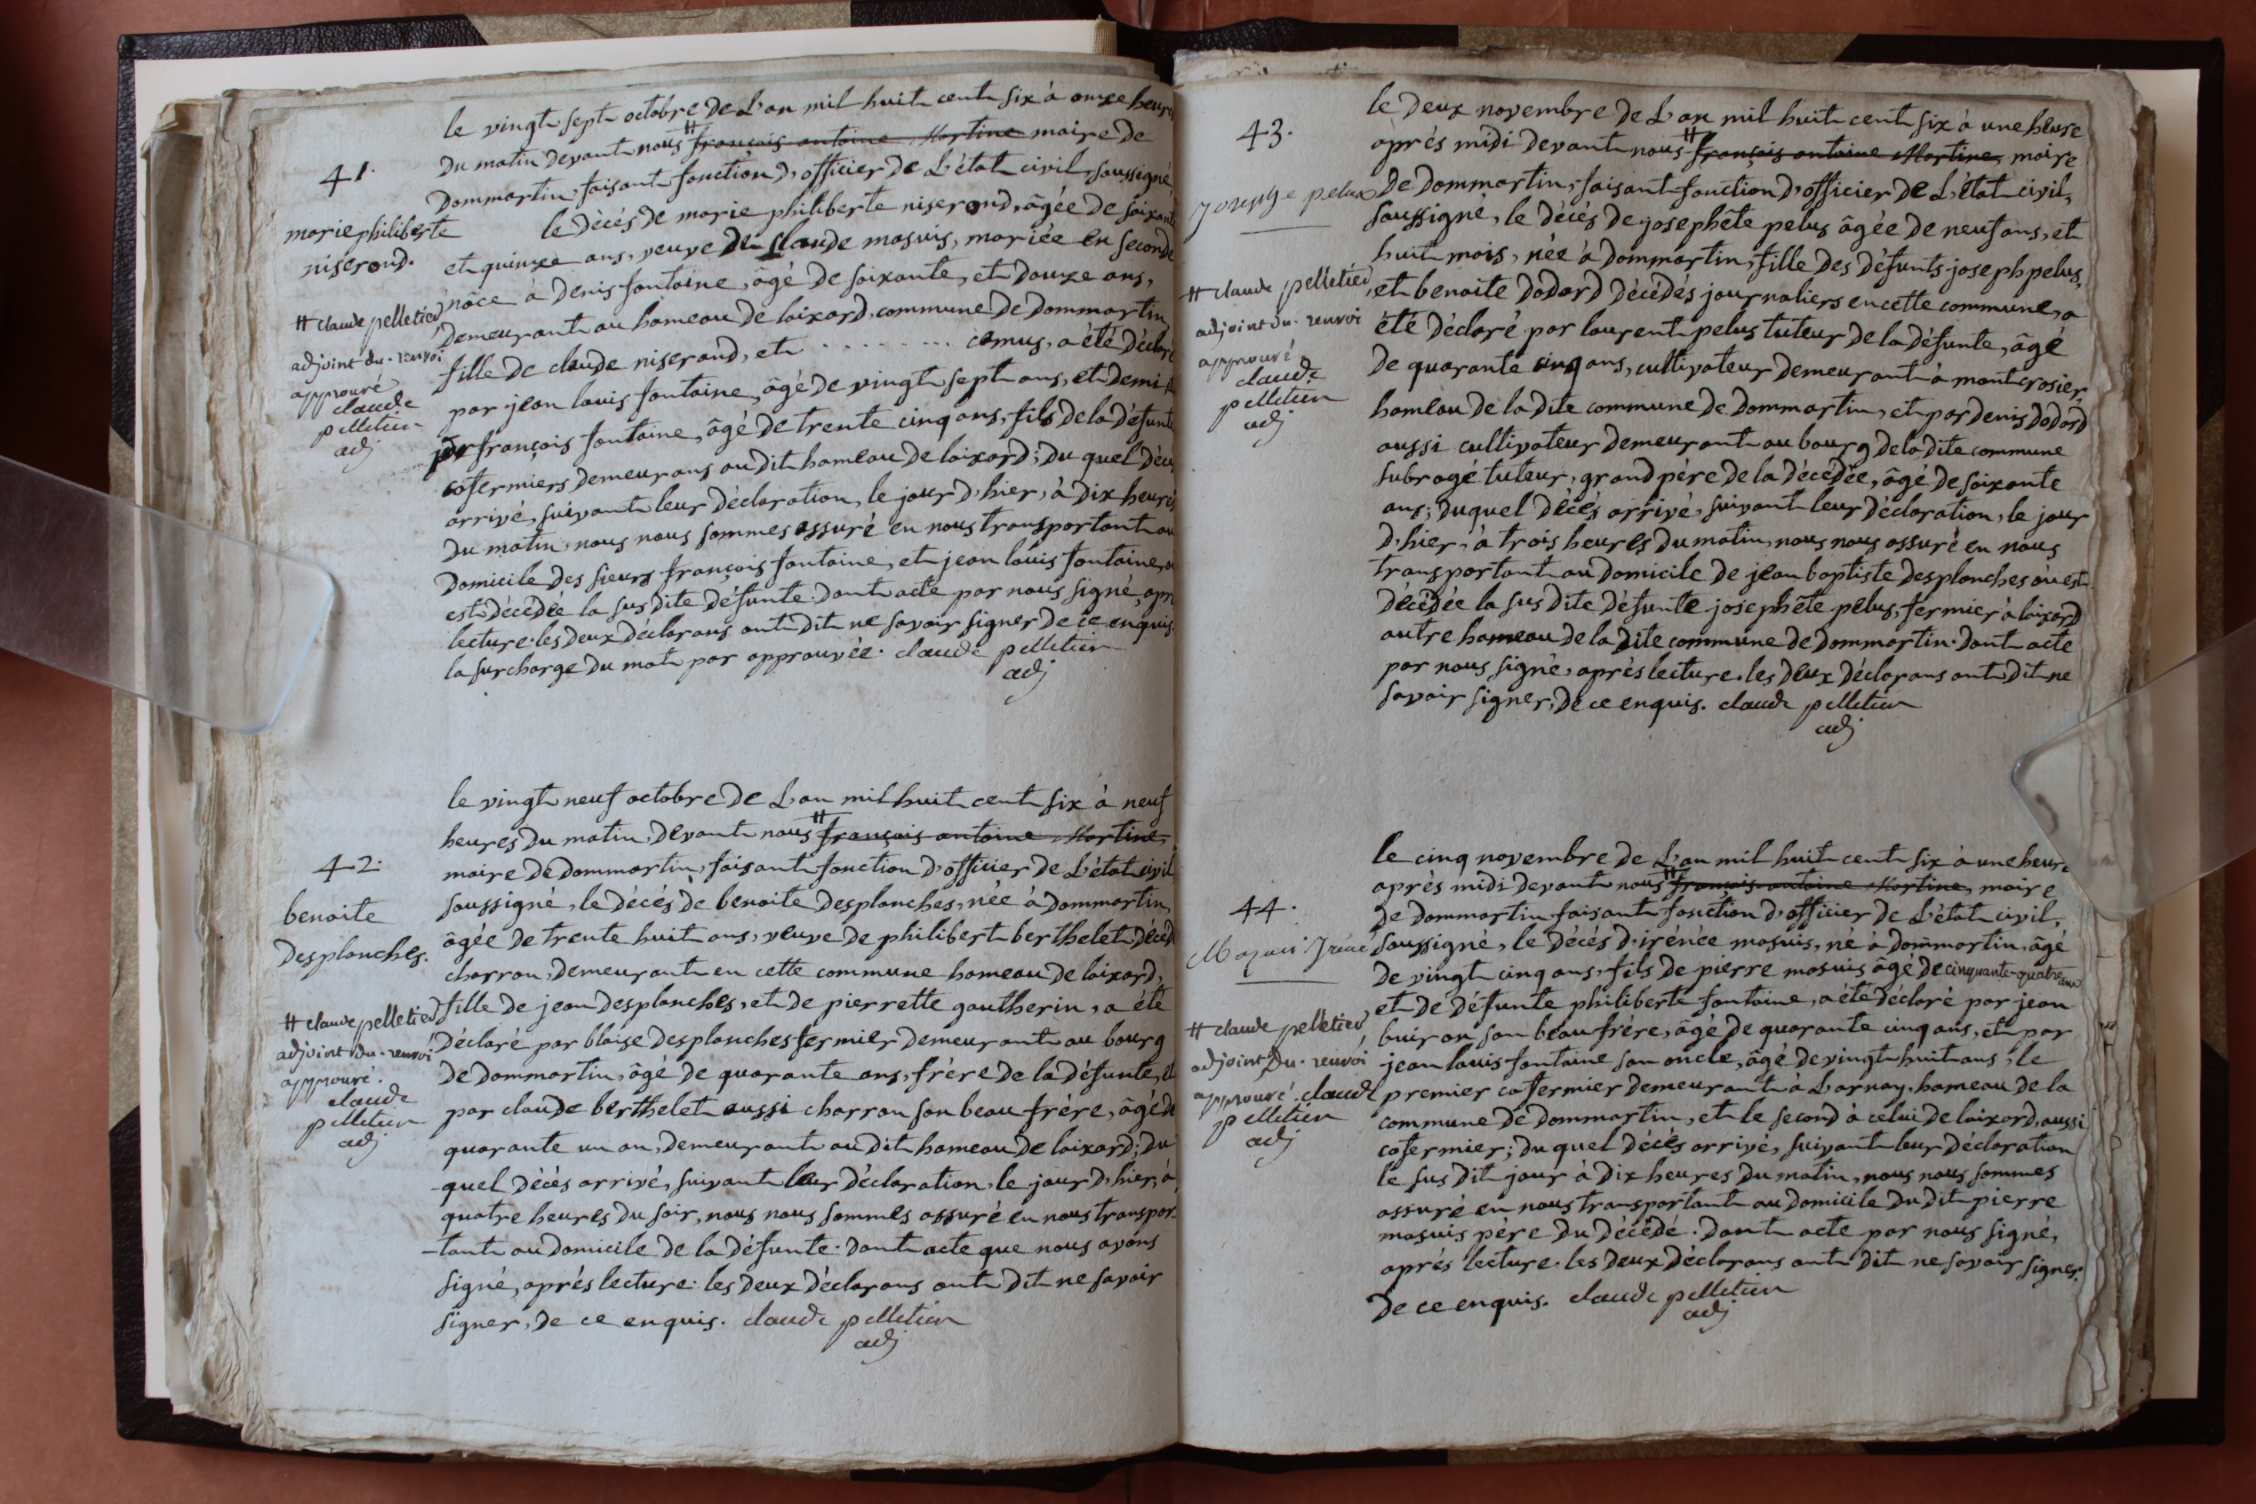 41.
marie philiberte
niserond.
# claude pelletier
adjoint du. renvoi
approuvé
claude
pelletier
adj
le vingt sept octobre de L'an mil huit cent six à onze heures
du matin devant nous # françois antoine Martine maire de
Dommartin, faisant fonction d'officier de L'état civil, soussigné,
le décés de marie philiberte niserond, âgée de soixante
et quinze ans, veuve de claude masuis, mariée en seconde
nôce à denis fontaine, âgé de soixante, et douze ans,
demeurant au hameau de loixard, commune de Dommartin
fille de claude niserond, et . . . . . . . . camus, a été déclaré
par jean louis fontaine, âgé de vingt sept ans, et demi &
par françois fontaine, âgé de trente cinq ans, fils de la défunte
cofermiers demeurans au dit hameau de loixard; du quel décé
arrivé, suivant leur déclaration, le jour d'hier, à dix heures
du matin, nous nous sommes assuré en nous transportant au
domicile des sieurs françois fontaine, et jean louis fontaine, ou
est décédée la sus dite défunte. dont acte par nous signé, apr
lecture. les deux déclarans ont dit ne savoir signer de ce enquis.
la surcharge du mot par approuvée. claude pelletier
adj
42.
benoite
desplanches.
# claude pelletier
adjoint du. renvoi
approuvé.
claude
pelletier
adj
le vingt neuf octobre de L'an mil huit cent six à neuf
heures du matin, devant nous # françois antoine Martine
maire de Dommartin, faisant fonction d'officier de L'état civil
soussigné, le décés de benoite desplanches, née à Dommartin,
âgée de trente huit ans, veuve de philibert berthelet décédé
charron, demeurant en cette commune hameau de loixard,
fille de jean desplanches, et de pierrette gautherin, a été
déclaré par blaise desplanches fermier demeurant au bourg
de Dommartin, âgé de quarante ans, frère de la défunte, et
par claude berthelet aussi charron son beau frère, âgé de
quarante un an, demeurant au dit hameau de loixard; du
-quel décés arrivé, suivant leur déclaration, le jour d'hier, à
quatre heures du soir, nous nous sommes assuré en nous transpor-
-tant au domicile de la défunte. dont acte que nous avons
signé, après lecture. les deux déclarans ont dit ne savoir
signer, de ce enquis. claude pelletier
adj
43.
josephe pelus
# claude pelletier
adjoint du. renvoi
approuvé
claude
pelletier
adj
le deux novembre de L'an mil huit cent six à une heure
après midi devant nous # françois antoine Martine, maire
de Dommartin, faisant fonction d'officier de L'état civil,
soussigné, le décés de josephête pelus âgée de neuf ans, et
huit mois, née à Dommartin, fille des défunts joseph pelus,
et benoite dodard décédés journaliers en cette commune, a
été déclaré par laurent pelus tuteur de la défunte, âgé
de quarante cinq ans, cultivateur demeurant à montcrosier,
hameau de la dite commune de Dommartin, et par denis dodard
aussi cultivateur demeurant au bourg de la dite commune
subrogé tuteur, grand père de la décédée, âgé de soixante
ans; duquel décés arrivé, suivant leur déclaration, le jour
d'hier, à trois heures du matin, nous nous assuré en nous
transportant au domicile de jean baptiste desplanches où est
décédée la sus dite défunte josephête pelus, fermier à loixard
autre hameau de la dite commune de Dommartin. dont acte
par nous signé, après lecture. les deux déclarans ont dit ne
savoir signer, de ce enquis. claude pelletier
adj
44.
Mazuis Iréné
# claude pelletier
adjoint Du. renvoi
approuvé. claude
pelletier
adj
le cinq novembre de L'an mil huit cent six à une heure
après midi devant nous # françois antoine Martine, maire
de Dommartin faisant fonction d'officier de L'état civil,
soussigné, le décés d'irénée masuis, né à Dommartin, âgé
de vingt cinq ans, fils de pierre masuis âgé de cinquante-quatre ans
et de défunte philiberte fontaine, a été déclaré par jean
buiron son beau frère, âgé de quarante cinq ans, et par
jean louis fontaine son oncle, âgé de vingt huit ans, le
premier cofermier demeurant à L'arnay, hameau de la
commune de Dommartin, et le second à celui de loixard, aussi
cofermier; du quel décés arrivé, suivant leur déclaration
le sus dit jour à dix heures du matin, nous nous sommes
assuré en nous transportant au domicile du dit pierre
masuis père du décédé. dont acte par nous signé,
après lecture. les deux déclarans ont dit ne savoir signer,
de ce enquis. claude pelletier
adj